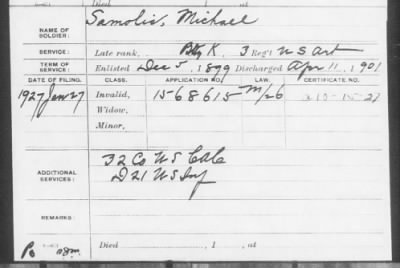 Died , 1 , at
NAME OF SOLDIER: Samolis, Michael
SERVICE: Late rank, Bty K, 3 Reg't U S Art
TERM OF SERVICE: Enlisted Dec 5, 1899 Discharged Apr 11, 1901
DATE OF FILING. CLASS. APPLICATION NO. LAW. CERTIFICATE NO.
1927 Jan 27 Invalid, 1568615 M/26
Widow,
Minor,
ADDITIONAL SERVICES: 32 Co U S CAC
D 21 U S Inf
REMARKS:
Died , 1 , at